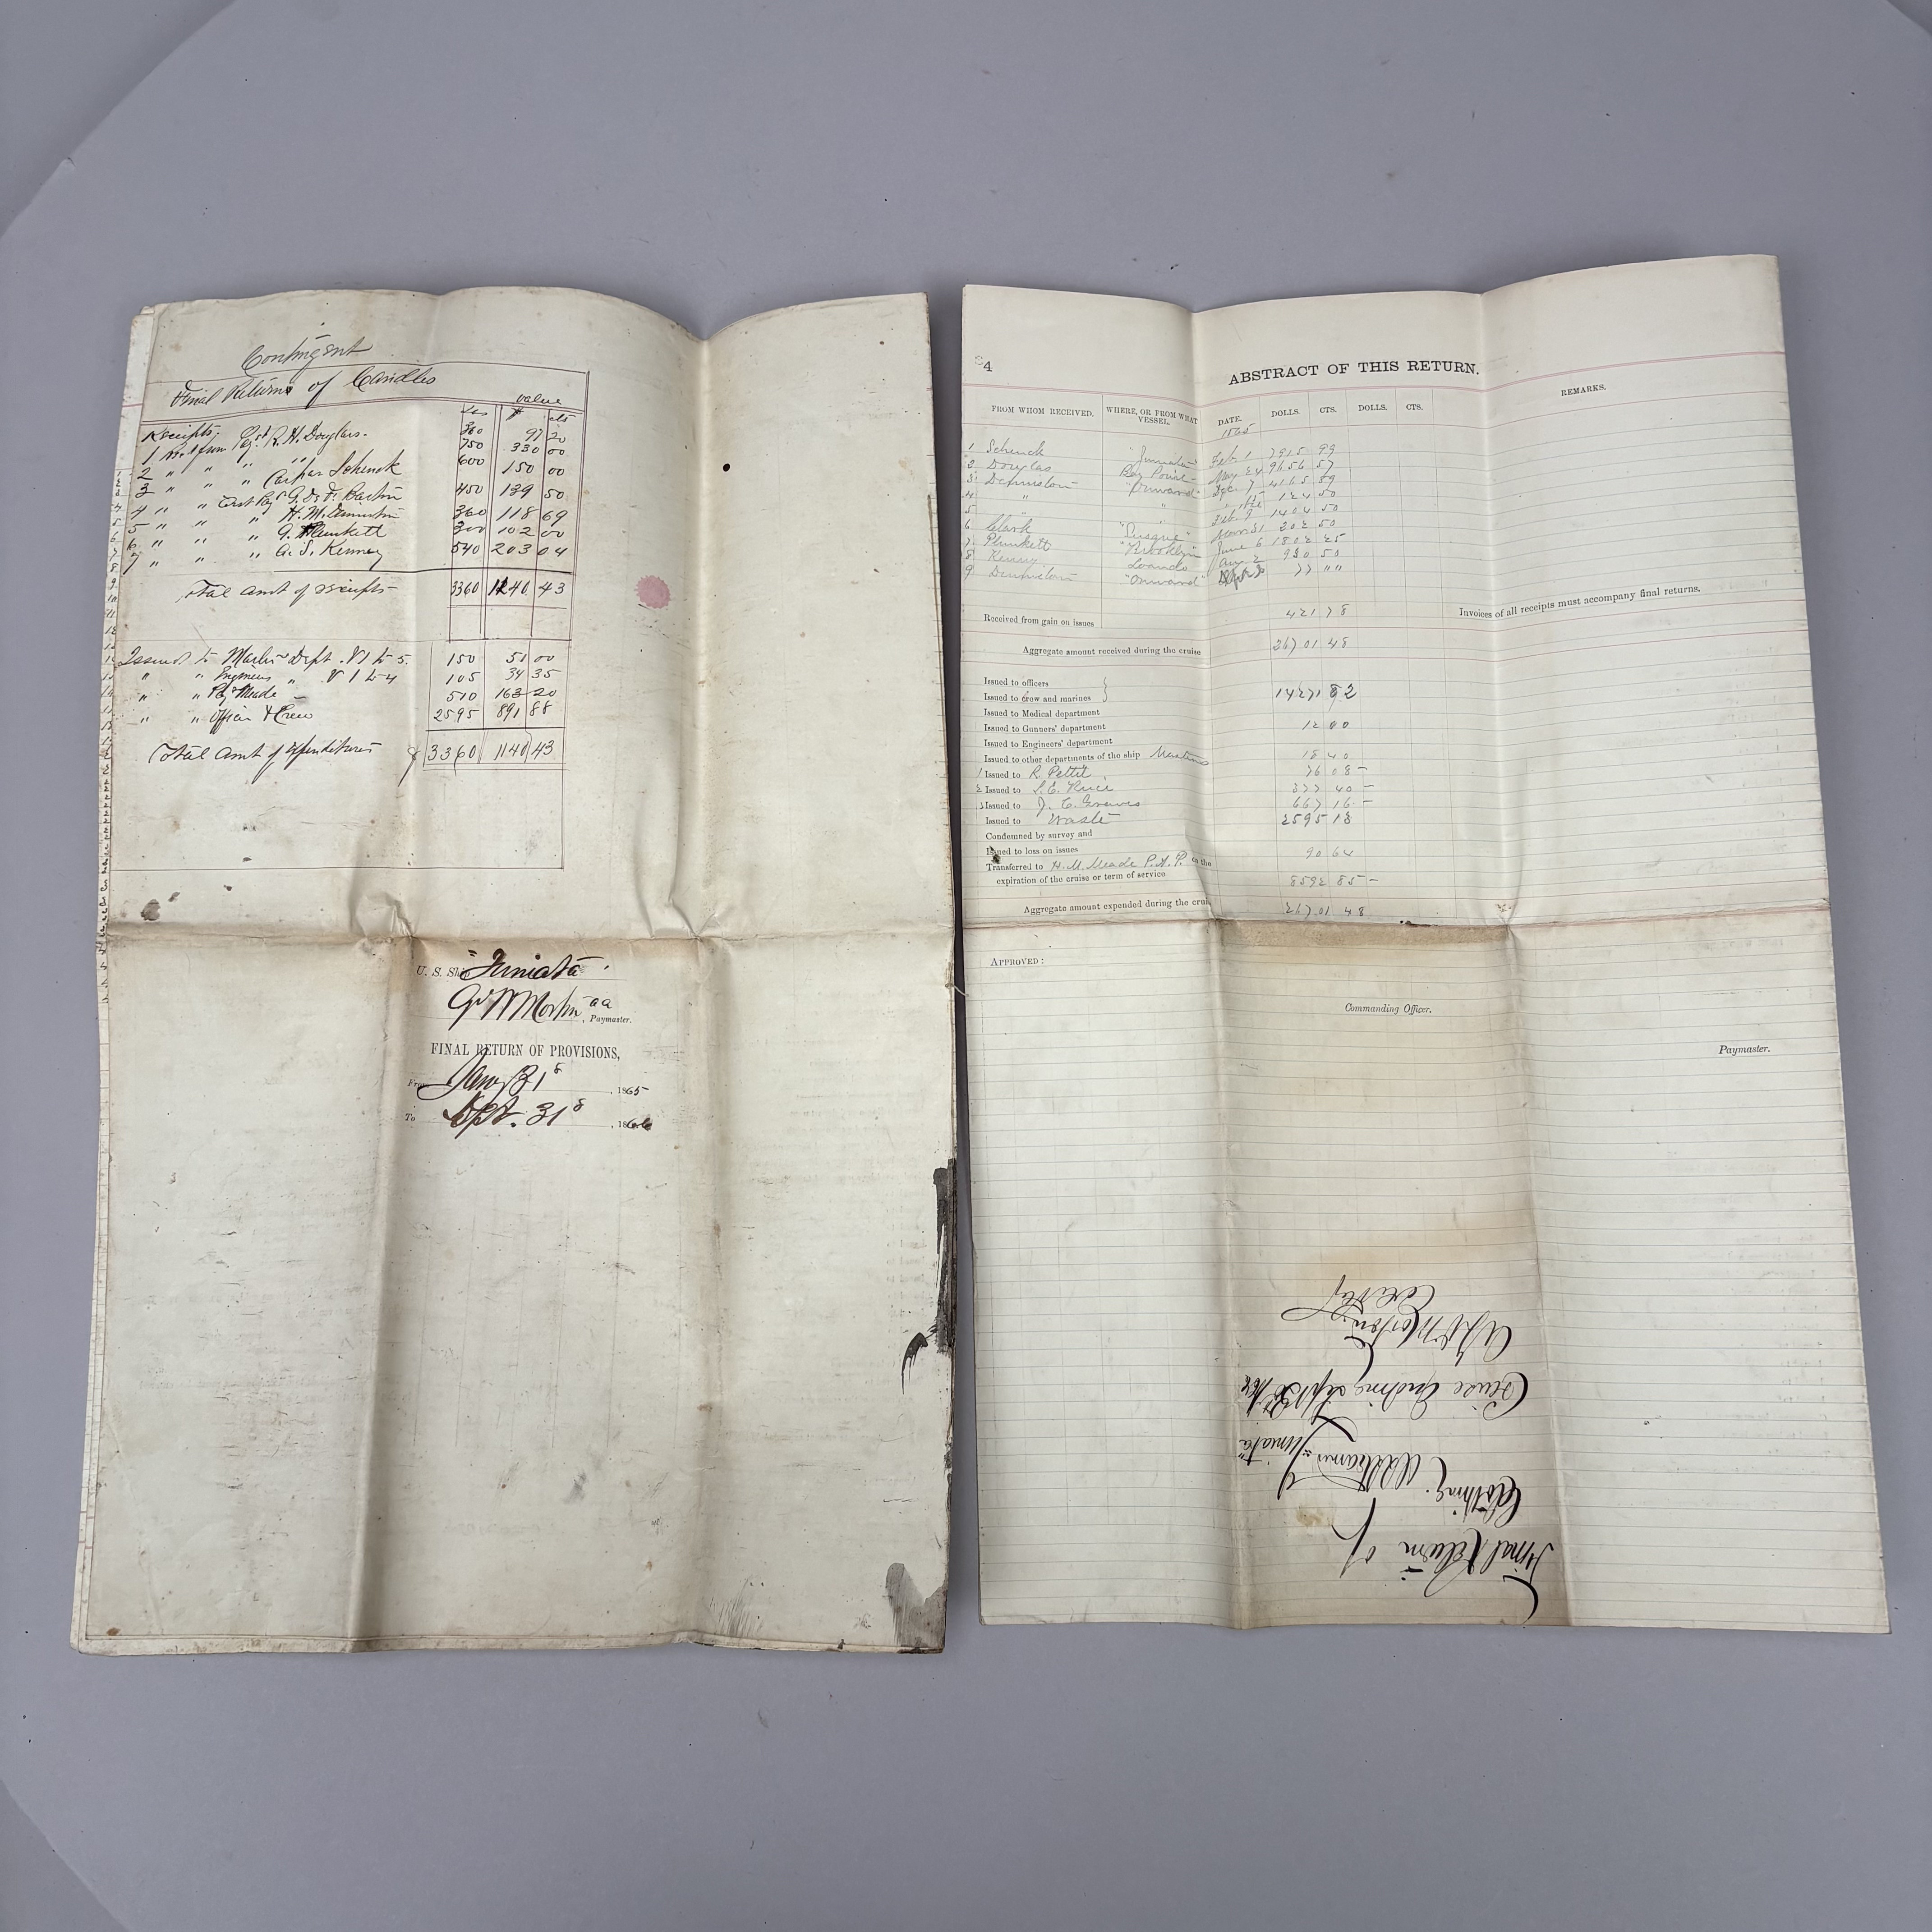 Contingent
Final Return of Candles
value
lbs $ cts
Receipts
1 Rec'd from Pay'r R. H. Douglass. 360 97 20
2 " " " " 750 330 00
3 " " " Caspar Schenck 600 150 00
4 " " Asst Pay'r G. D. F. Barton 450 139 50
5 " " " H. M. Denniston 360 118 69
6 " " " G. Plunkett 300 102 00
7 " " " A. S. Kenney 540 203 04
Total amt of receipts 3360 1140 43
Issued to Master's Dept. V 1 to 5. 150 51 00
" " Engineers " V 1 to 4 105 34 35
" " Pay'r Meade 510 163 20
" " Officers & Crew 2595 891 88
Total amt of Expenditures 3360 1140 43
U. S. Ship "Juniata"
G W Morton aa
, Paymaster.
FINAL RETURN OF PROVISIONS,
From Jany 31s , 1865
To Sept. 31s , 1866
4
ABSTRACT OF THIS RETURN.
FROM WHOM RECEIVED. WHERE, OR FROM WHAT VESSEL. DATE. DOLLS. CTS. DOLLS. CTS. REMARKS.
1865
1 Schenck "Juniata" Feb 1 7915 99
2 Douglas Bay Point May 24 9656 57
3 Denniston "Onward" Dec 7 4165 89
4 " " " 124 50
5 " Feb 9 1404 50
6 Clark 202 50
7 Plunkett "Brooklyn" June 6 1802 25
8 Kenny Loando Aug 2 930 50
9 Denniston "Onward" 77 " "
Received from gain on issues 421 78
Invoices of all receipts must accompany final returns.
Aggregate amount received during the cruise 26701 48
Issued to officers
Issued to crew and marines 14271 82
Issued to Medical department
Issued to Gunners' department 12 00
Issued to Engineers' department
Issued to other departments of the ship 18 40
1 Issued to R. Pettit 76 08 –
2 Issued to S. E. Rice 377 40 –
3 Issued to J. C. Graves 667 16 –
Issued to Waste 2595 18
Condemned by survey and
Issued to loss on issues 90 64
Transferred to H. M. Meade P. A. P. on the
expiration of the cruise or term of service 8592 85 –
Aggregate amount expended during the cruise 26701 48
APPROVED:
Commanding Officer.
Paymaster.
Final Return of
Clothing.
"Juniata"
Cruise Ending Sept 30
G W Morton